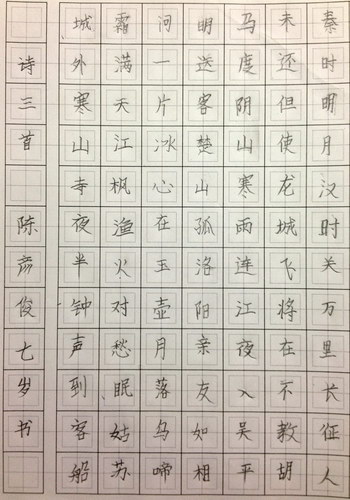 秦时明月汉时关万里长征人
未还但使龙城飞将在不教胡
马度阴山寒雨连江夜入吴平
明送客楚山孤洛阳亲友如相
问一片冰心在玉壶月落乌啼
霜满天江枫渔火对愁眠姑苏
城外寒山寺夜半钟声到客船
诗三首 陈彦俊七岁书